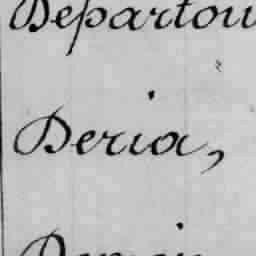 Departou
Deria,